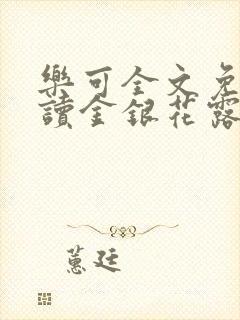 樂可全文免
讀金銀花露
蕙廷